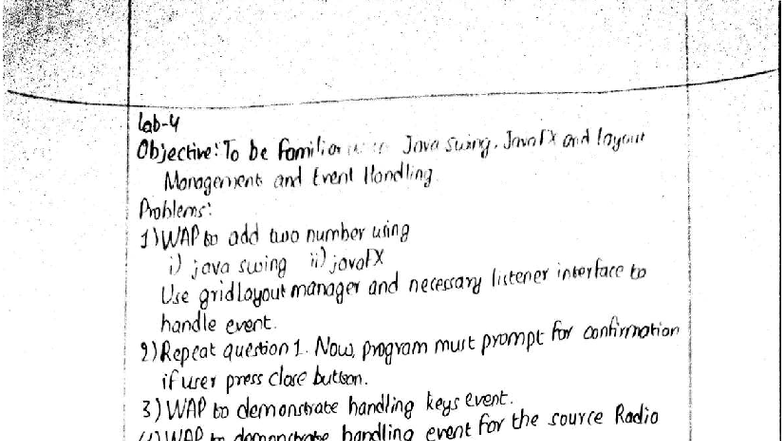 Lab-4
Objective: To be familiar Java swing, JavaFX and layout
Management and Event Handling.
Problems:
1) WAP to add two number using
i) java swing ii) javaFX
Use gridLayout manager and necessary listener interface to
handle event.
2) Repeat question 1. Now, program must prompt for confirmation
if user press close button.
3) WAP to demonstrate handling keys event.
4) WAP to demonstrate handling event for the source Radio